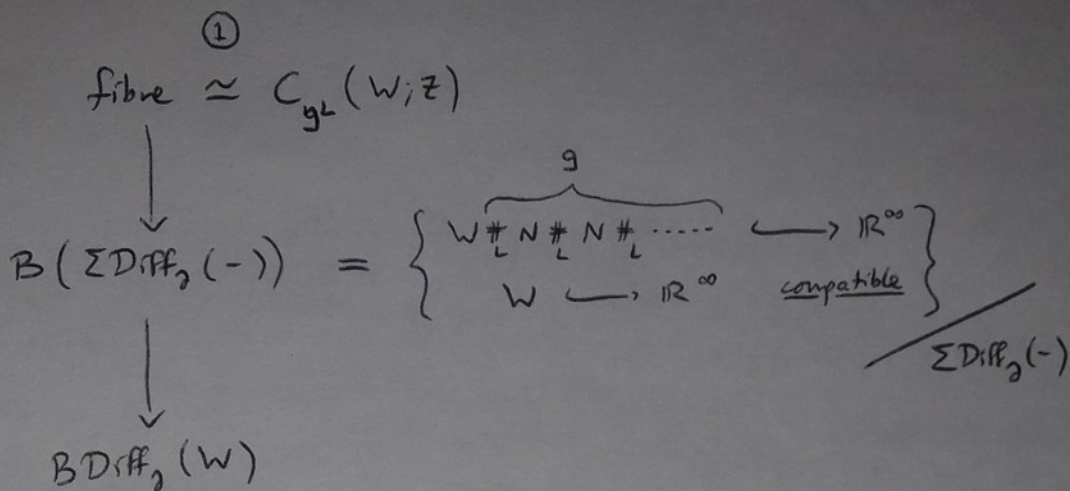 ①
fibre ≃ C_{gL}(W;Z)
g
B(ΣDiff_∂(-)) = { W #_L N #_L N #_L ...... ↪ ℝ^∞
W ↪ ℝ^∞ compatible } / ΣDiff_∂(-)
BDiff_∂(W)